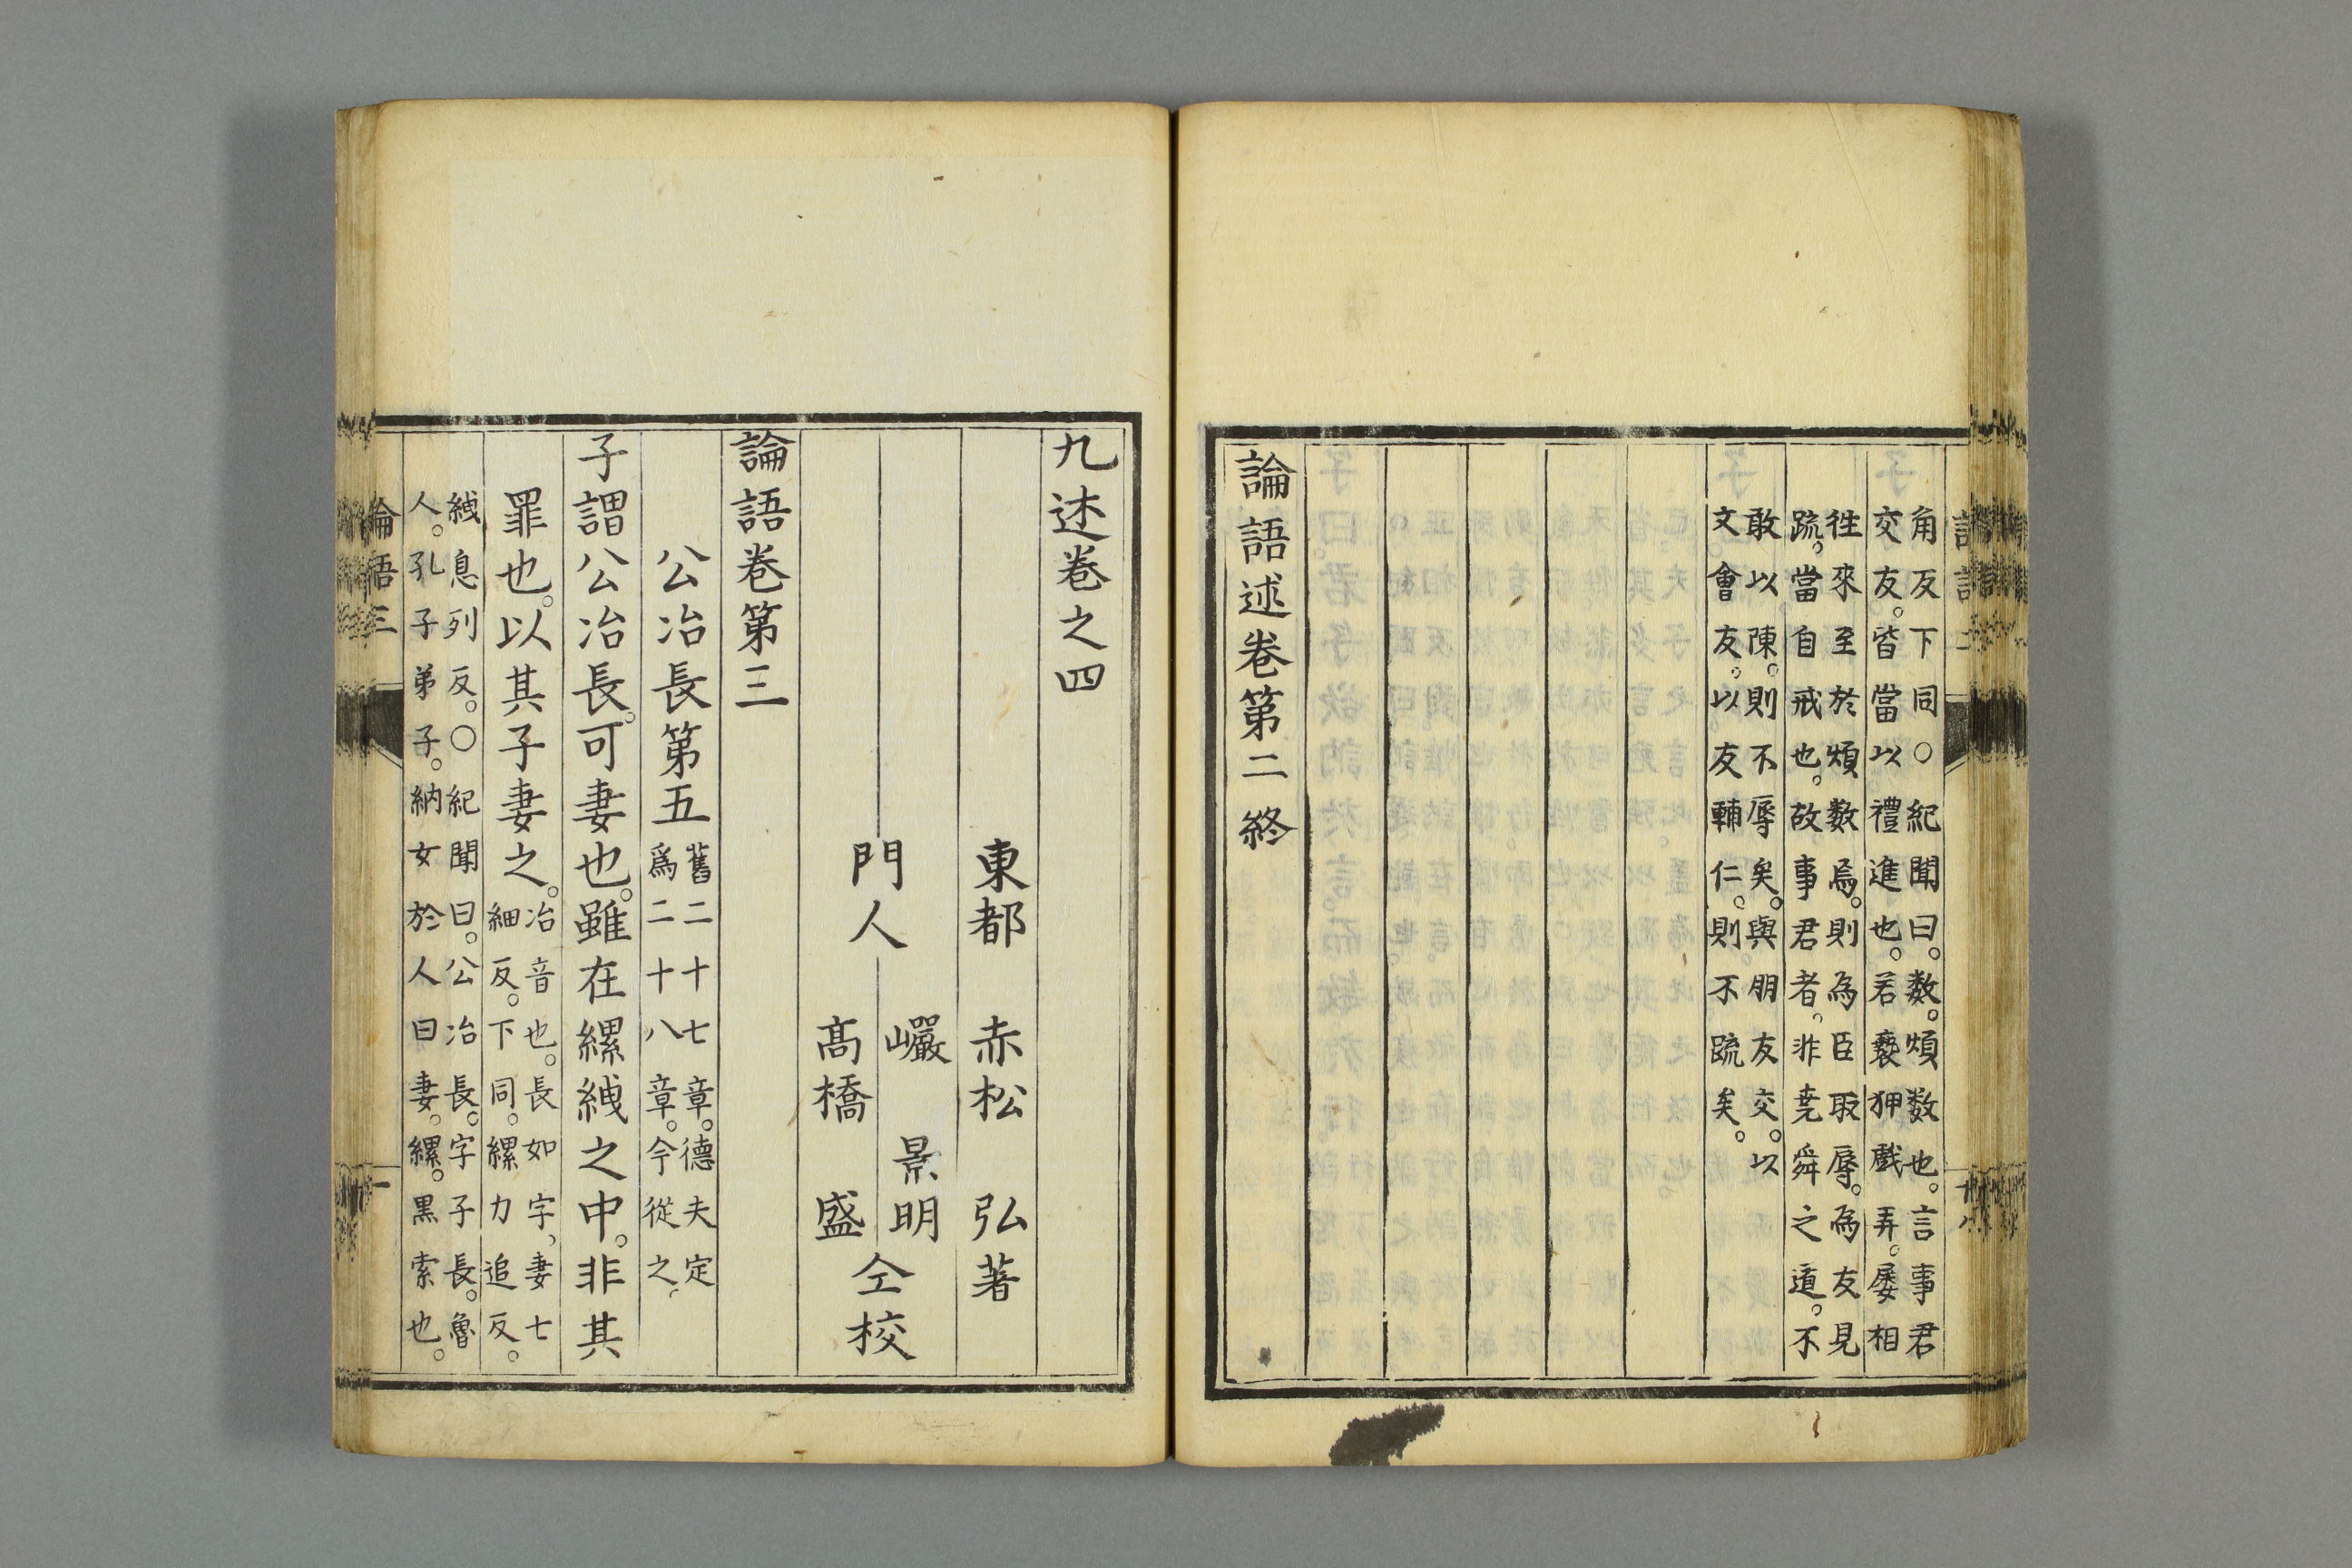 角反下同○紀聞曰。数。煩数也。言事君
交友。皆當以禮進也。若褻狎戲弄。屡相
徃來至於煩数焉。則為臣取辱。為友見
疏。當自戒也。故事君者。非堯舜之道。不
敢以陳。則不辱矣。與朋友交。以
文會友。以友輔仁。則不疏矣。
論語述卷第二終
九述卷之四
東都 赤松 弘著
門人
巗 景明
髙橋 盛
仝校
論語卷第三
公冶長第五
舊二十七章。德夫定
爲二十八章。今從之。
子謂公冶長。可妻也。雖在縲絏之中。非其
罪也。以其子妻之。
冶音也。長如字。妻七
細反。下同。縲力追反。
絏息列反。○紀聞曰。公冶長。字子長。魯
人。孔子弟子。納女於人曰妻。縲。黒索也。
論語三
一